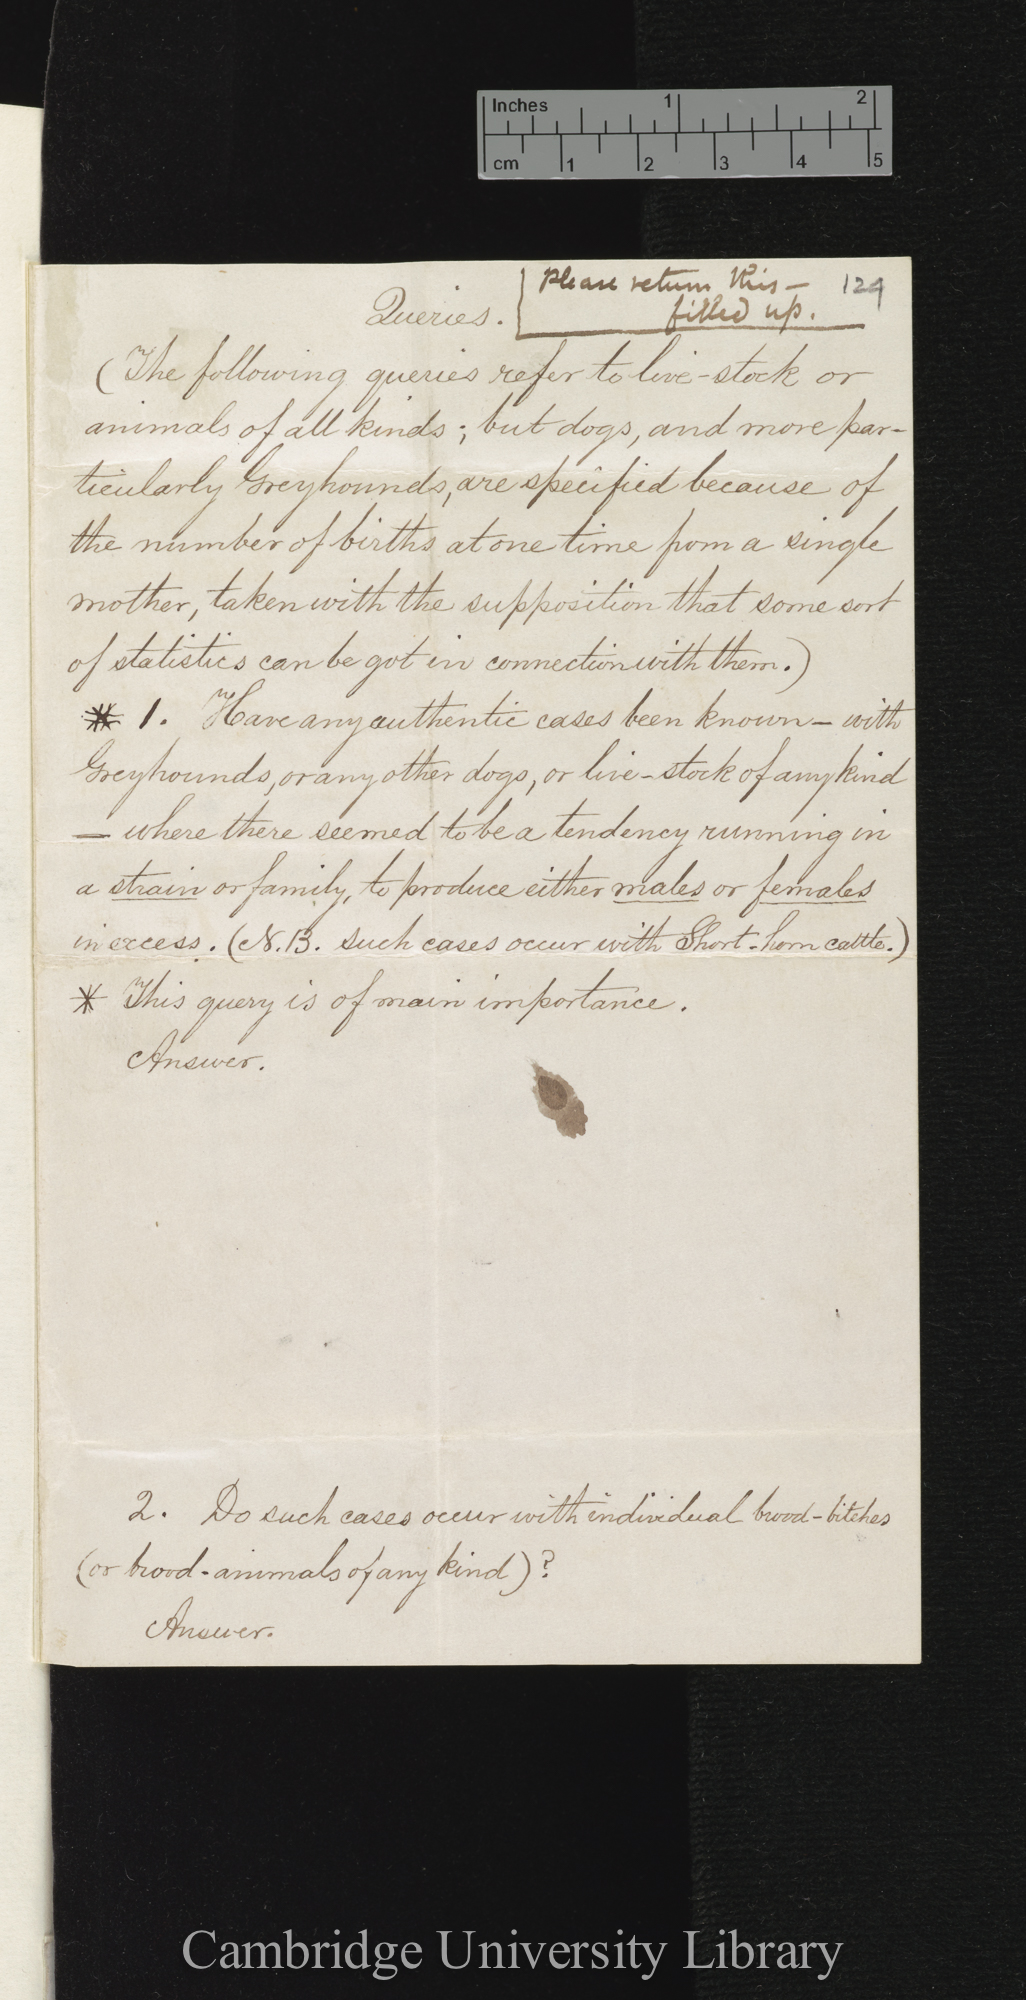 Inches 1 2
cm 1 2 3 4 5
Please return this — 124
filled up.
Queries.
(The following queries refer to live-stock or
animals of all kinds; but dogs, and more par-
ticularly Greyhounds, are specified because of
the number of births at one time from a single
mother, taken with the supposition that some sort
of statistics can be got in connection with them.)
* 1. Have any authentic cases been known — with
Greyhounds, or any other dogs, or live-stock of any kind
— where there seemed to be a tendency running in
a strain or family, to produce either males or females
in excess. (N.B. such cases occur with Short-horn cattle.)
* This query is of main importance.
Answer.
2. Do such cases occur with individual brood-bitches
(or brood-animals of any kind)?
Answer.
Cambridge University Library